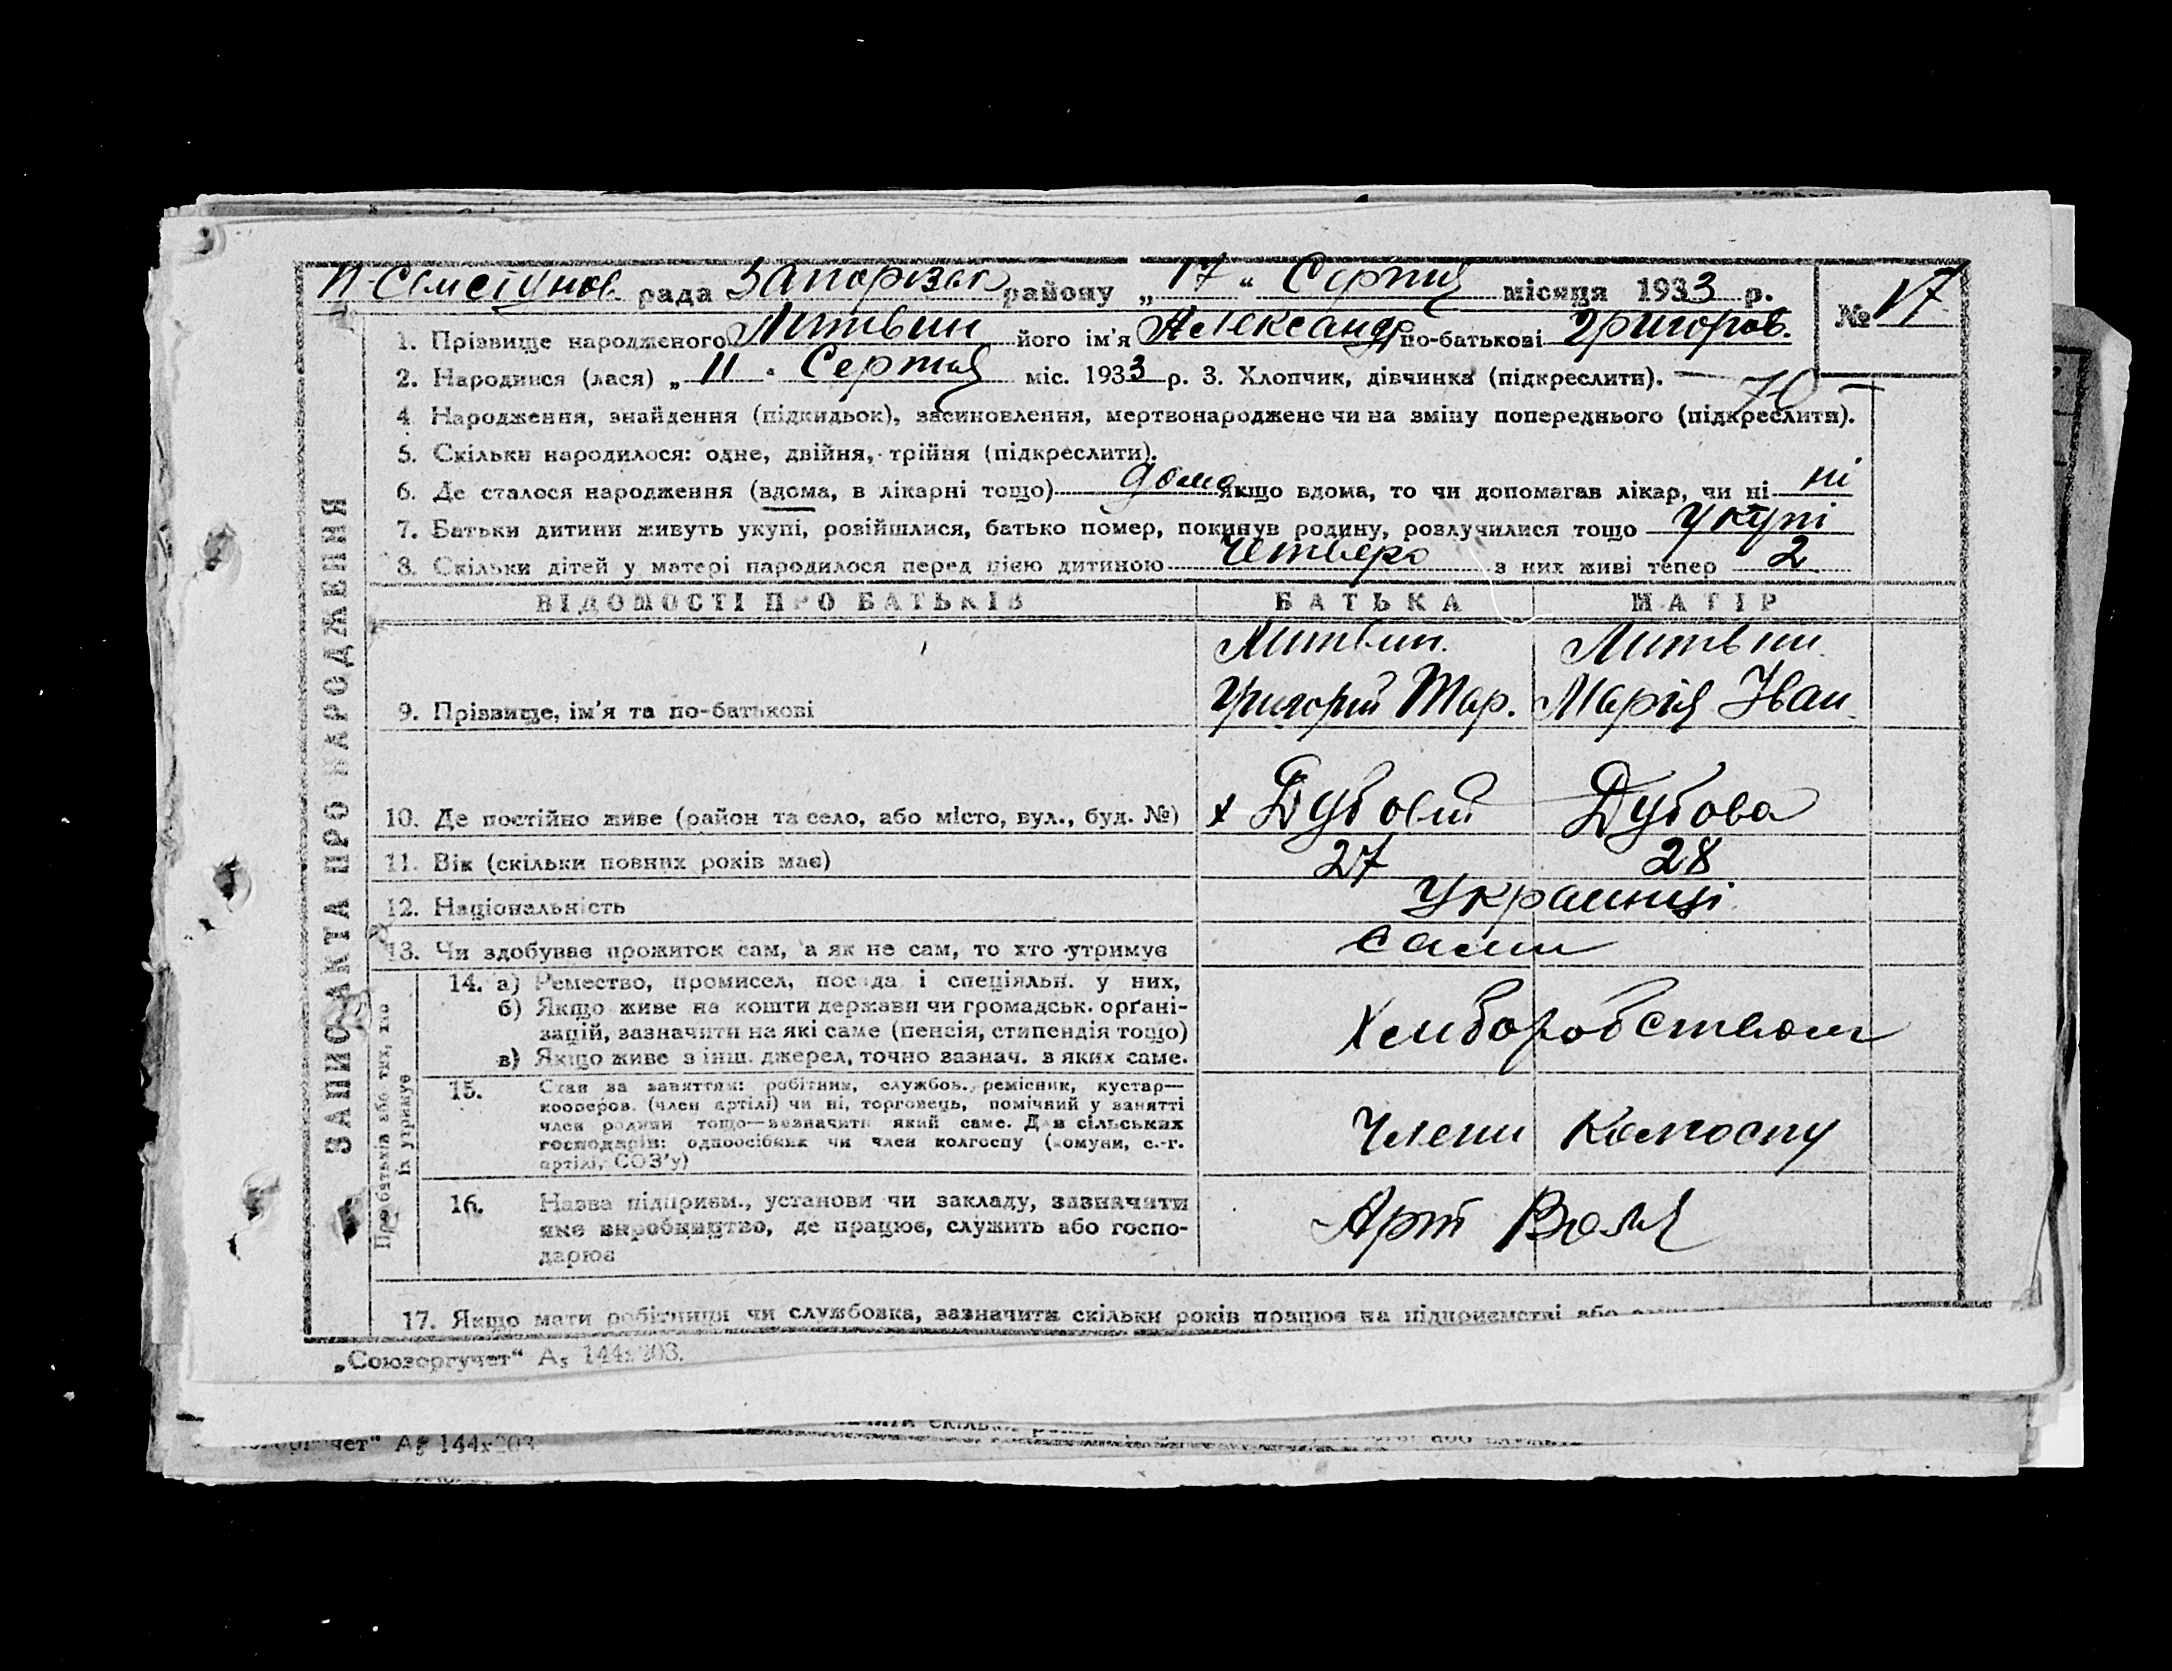 рада Запорізьк району „17“ Серпня місяця 1933 р.
№ 17
1. Прізвище народженого Литвин його ім'я Александр по-батькові Григоров.
2. Народився (лася) „11" Серпня міс. 1933 р. 3. Хлопчик, дівчинка (підкреслити).
4 Народження, знайдення (підкидьок), засиновлення, мертвонароджене чи на зміну попереднього (підкреслити).
5. Скільки народилося: одне, двійня, трійня (підкреслити).
6. Де сталося народження (вдома, в лікарні тощо) дома Якщо вдома, то чи допомагав лікар, чи ні ні
7. Батьки дитини живуть укупі, розійшлися, батько помер, покинув родину, розлучилися тощо укупі
8. Скільки дітей у матері народилося перед цією дитиною четверо з них живі тепер 2
ЗАПИС АКТА ПРО НАРОДЖЕННЯ
ВІДОМОСТІ ПРО БАТЬКІВ БАТЬКА МАТІР
Литвин. Литвин.
9. Прізвище, ім'я та по-батькові Григорій Мар. Марія Іван
10. Де постійно живе (район та село, або місто, вул., буд. №) х Дубовий Дубова
11. Вік (скільки повних років має) 27 28
12. Національність Українці
13. Чи здобуває прожиток сам, а як не сам, то хто утримує сами
Про батьків або тих, хто
їх утримує
14. а) Ремество, промисел, посада і спеціяльн. у них,
б) Якщо живе на кошти держави чи громадськ. орґані-
зацій, зазначити на які саме (пенсія, стипендія тощо)
в) Якщо живе з інш. джерел, точно зазнач. з яких саме.
Хлиборобством
15. Стан за заняттям: робітник, службов., ремісник, кустар—
кооперов. (член артілі) чи ні, торговець, помічний у занятті
член родини тощо—зазначити який саме. Для сільських
господарів: одноосібник чи член колгоспу (комуни, с.-г.
артілі, СОЗ'у)
Члени Колгоспу
16. Назва підприєм., установи чи закладу, зазначити
яке виробництво, де працює, служить або госпо-
дарює
Арт Воля
17. Якщо мати робітниця чи службовка, зазначити скільки років працює на підприємстві або
„Союзоргучет“ А5 144х203.
ет“ А5 144х203